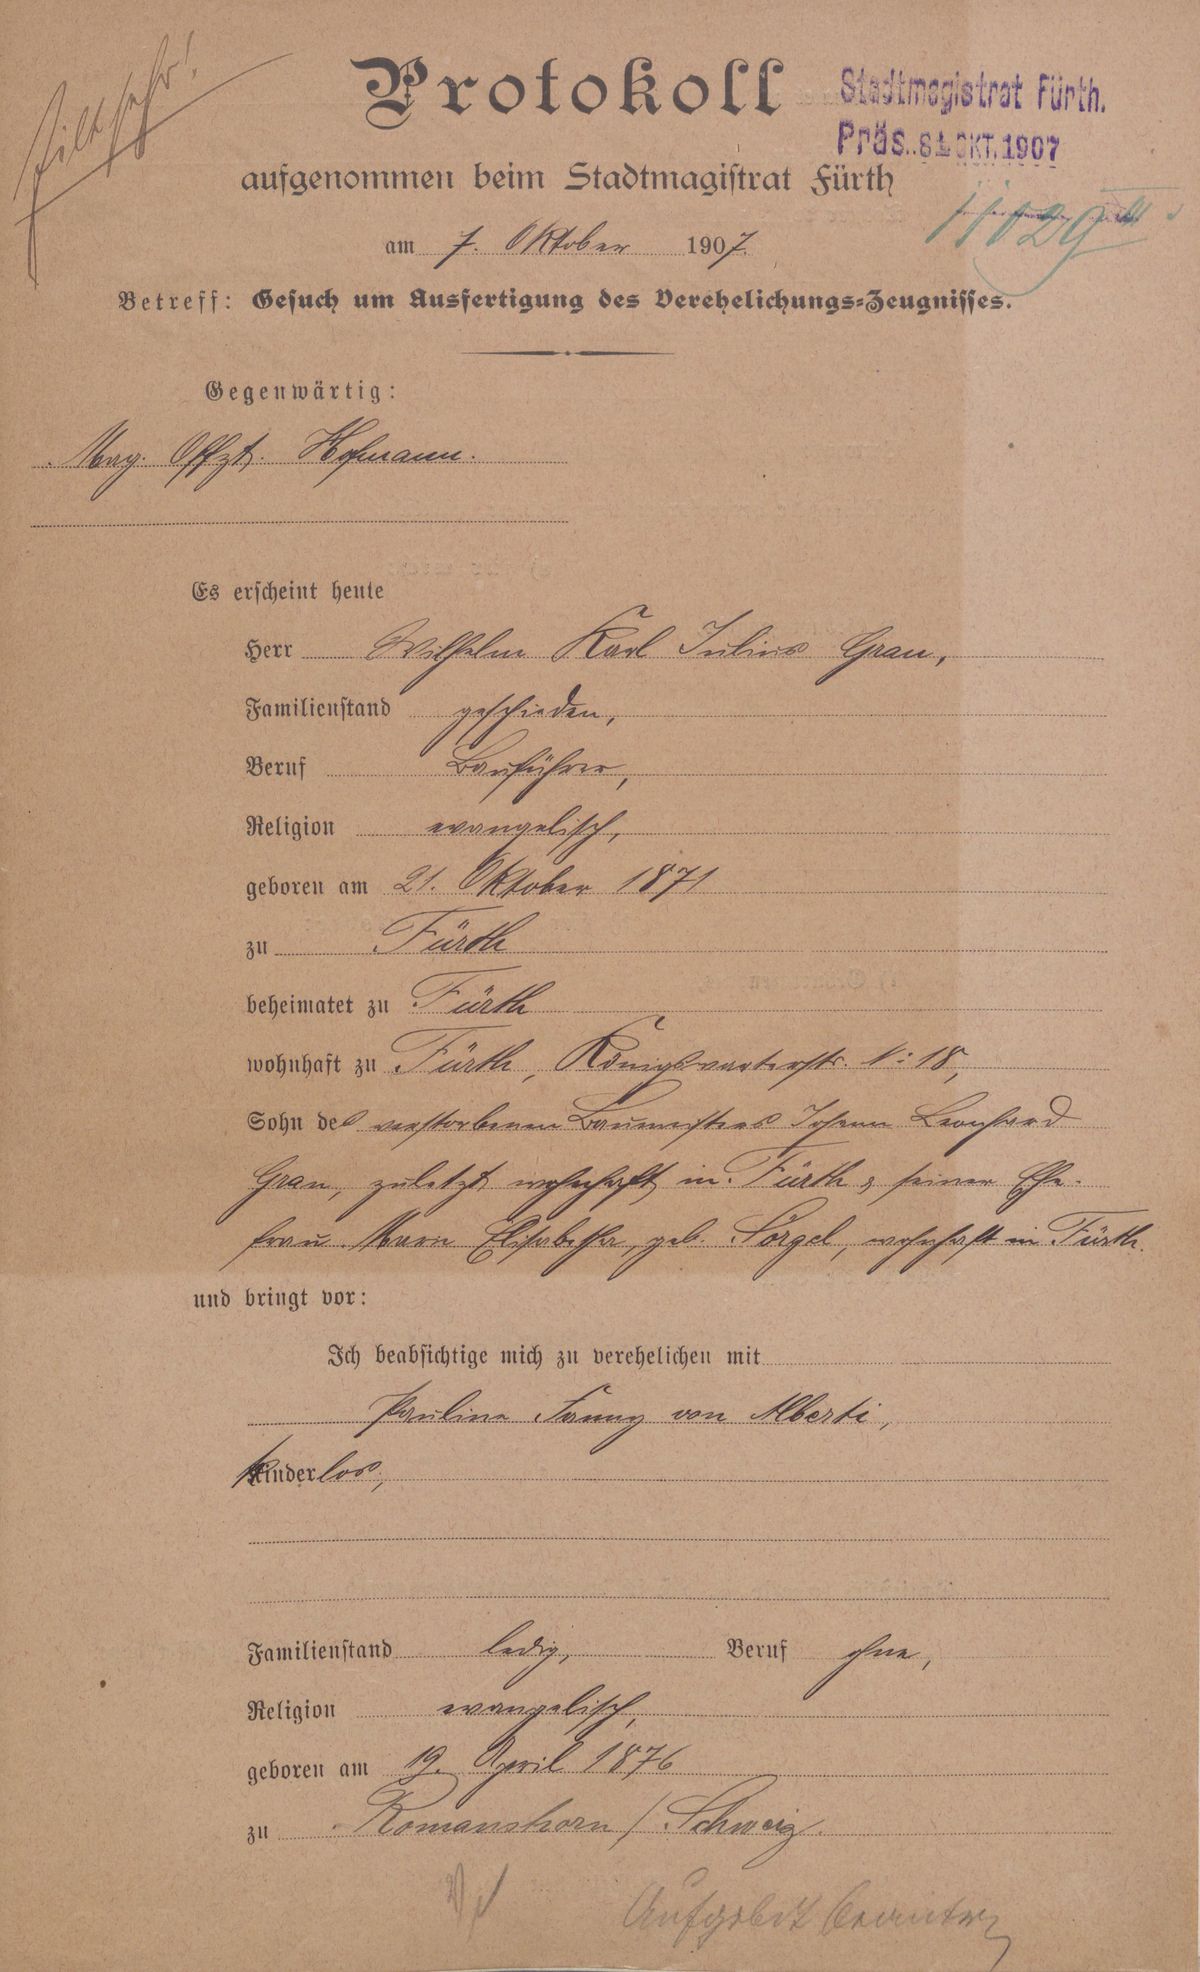 Eilt sehr!
Protokoll
Stadtmagistrat Fürth.
Präs. 8. OKT. 1907
aufgenommen beim Stadtmagistrat Fürth
am 7. Oktober 1907.
Betreff: Gesuch um Ausfertigung des Verehelichungs-Zeugnisses.
Gegenwärtig:
Mag. Offzt. Hofmann.
Es erscheint heute
Herr Wilhelm Karl Julius Grau,
Familienstand geschieden,
Beruf Bauführer,
Religion evangelisch,
geboren am 21. Oktober 1871
zu Fürth
beheimatet zu Fürth
wohnhaft zu Fürth, Königswarterstr. No 18,
Sohn des verstorbenen Baumeisters Johann Leonhard
Grau, zuletzt wohnhaft in Fürth & seiner Ehe-
frau Marie Elisabetha, geb. Sörgel, wohnhaft in Fürth.
und bringt vor:
Ich beabsichtige mich zu verehelichen mit
Pauline Fanny von Alberti,
kinderlos,
Familienstand ledig, Beruf ohne,
Religion evangelisch,
geboren am 19. April 1876
zu Romanshorn / Schweiz.
Aufgebot